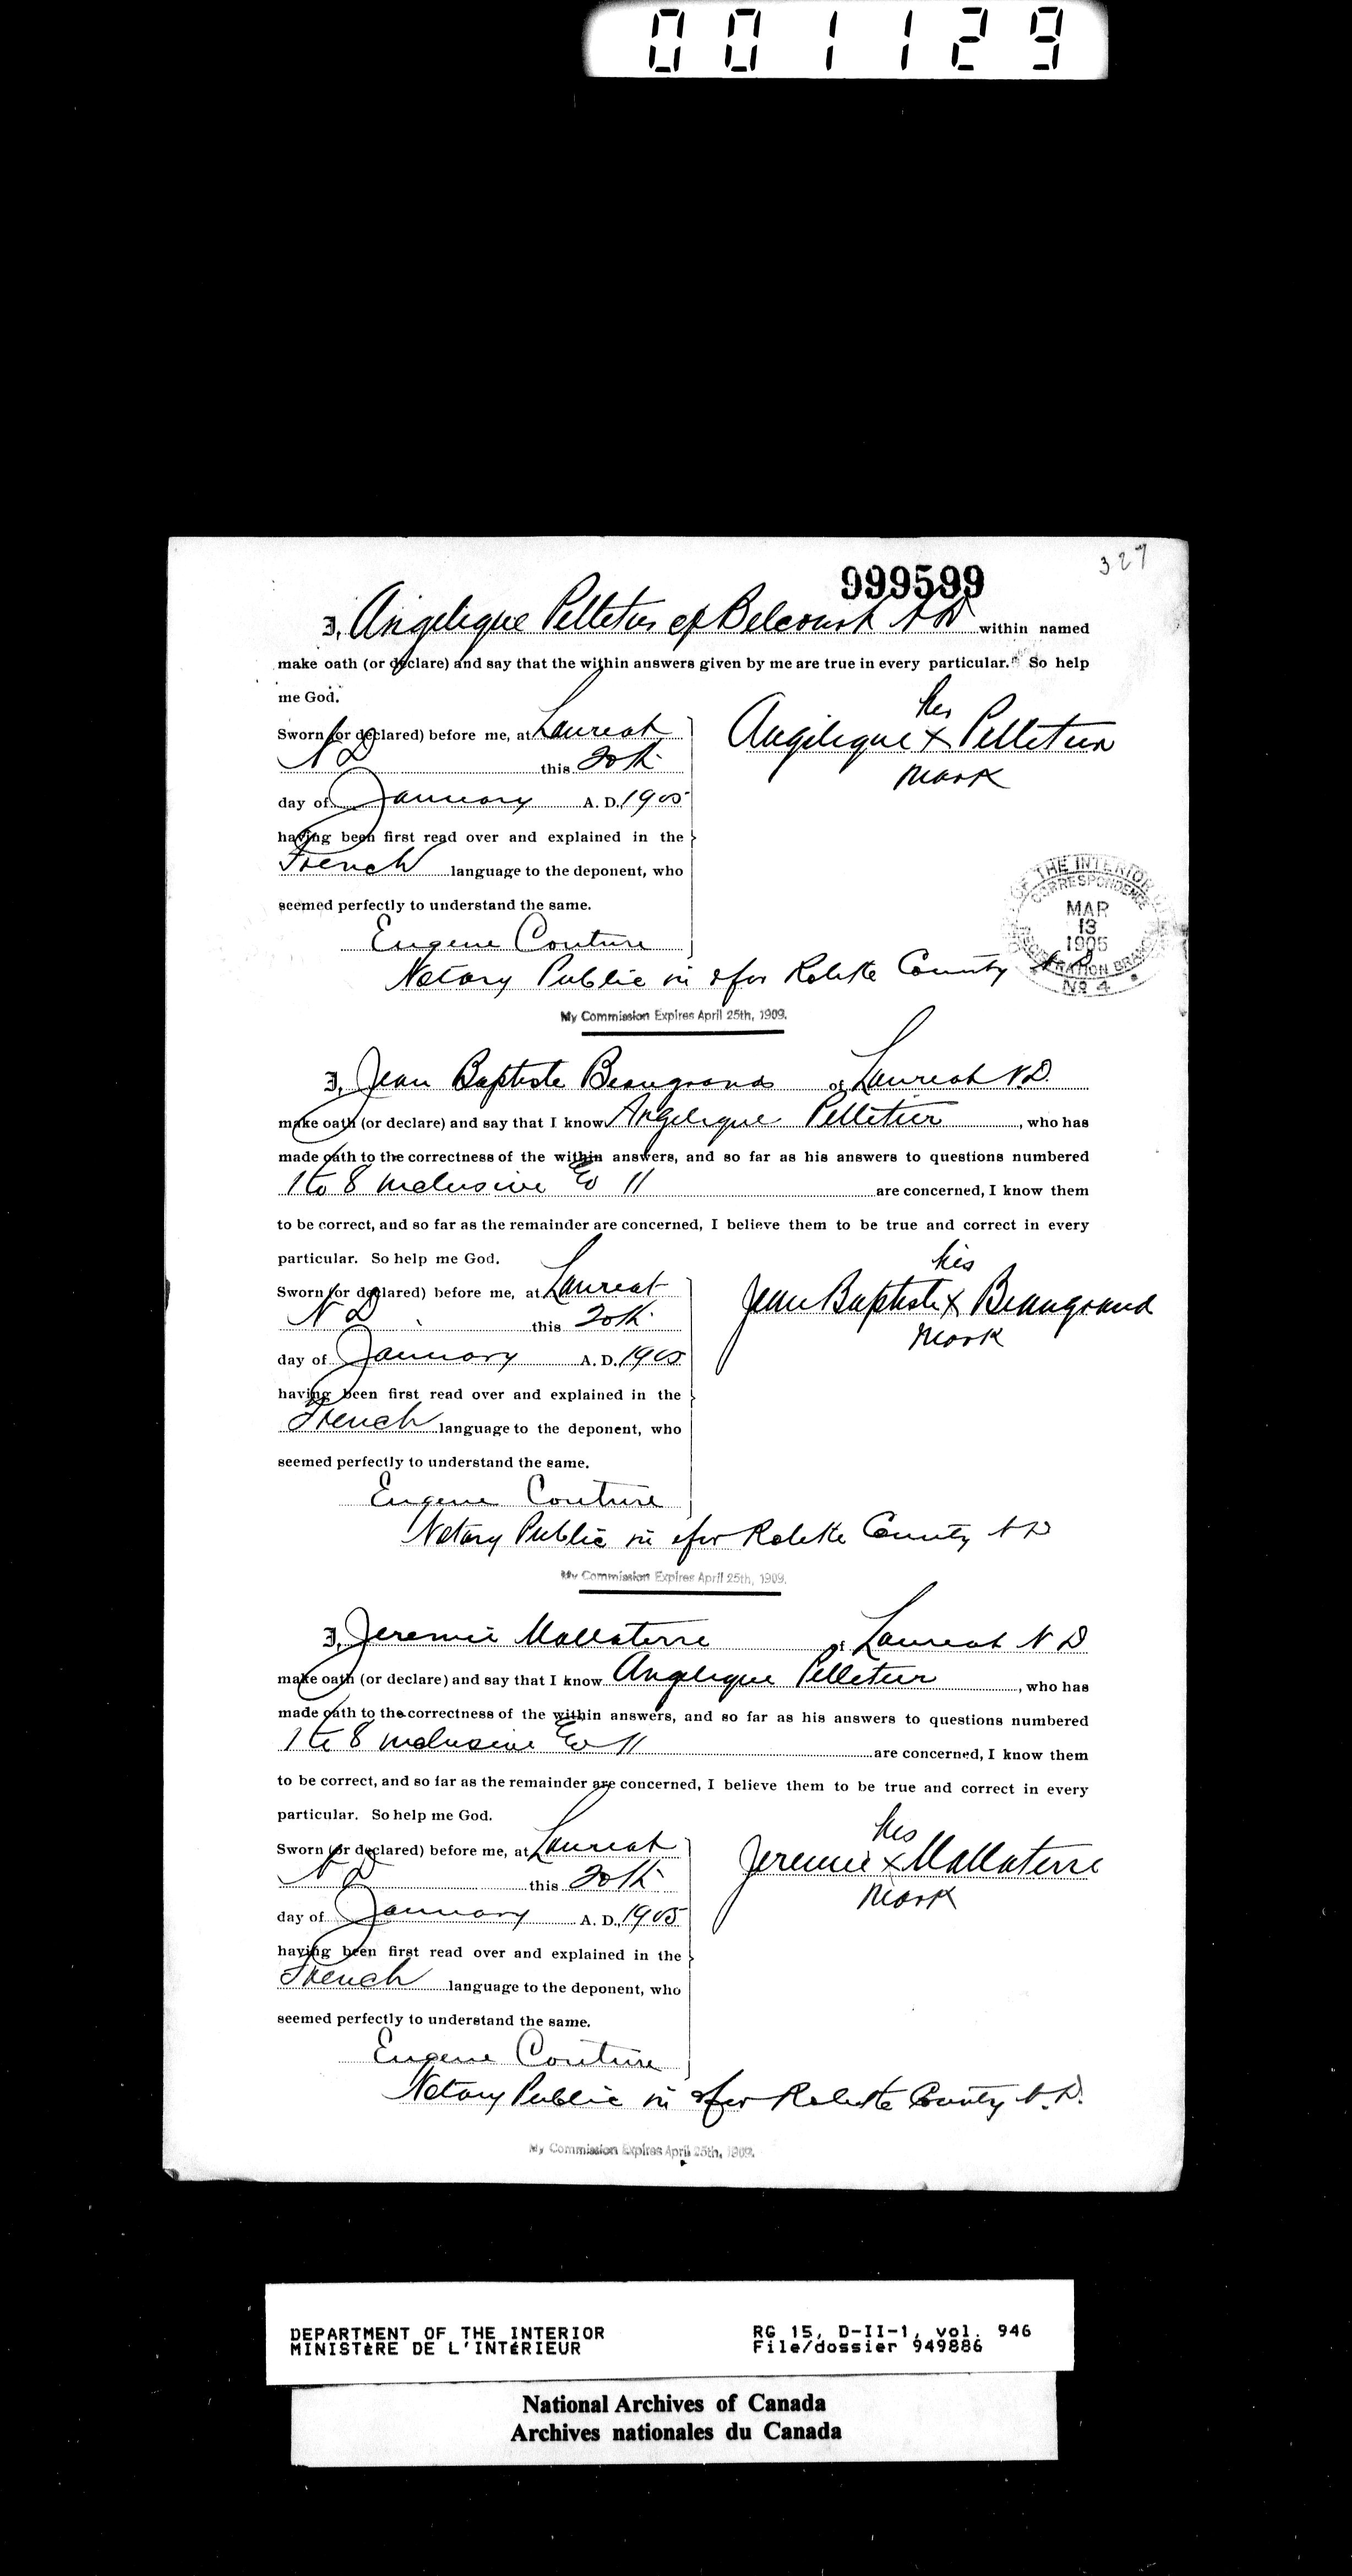 001129
327
999599
I, Angelique Pelletier of Belcourt N D within named
make oath (or declare) and say that the within answers given by me are true in every particular. So help
me God.
Sworn (or declared) before me, at Laureat
N D this 20th
day of January A. D. 1905
having been first read over and explained in the
French language to the deponent, who
seemed perfectly to understand the same.
Eugene Couture
Notary Public in & for Rolette County N D
My Commission Expires April 25th, 1909.
her
Angelique X Pelletier
mark
OF THE INTERIOR
CORRESPONDENCE
MAR
13
1905
REGISTRATION BRANCH
No 4
I, Jean Baptiste Beaugrand of Laureat N.D.
make oath (or declare) and say that I know Angelique Pelletier, who has
made oath to the correctness of the within answers, and so far as his answers to questions numbered
1 to 8 inclusive & 11 are concerned, I know them
to be correct, and so far as the remainder are concerned, I believe them to be true and correct in every
particular. So help me God.
Sworn (or declared) before me, at Laureat
N D this 20th
day of January A. D. 1905
having been first read over and explained in the
French language to the deponent, who
seemed perfectly to understand the same.
Eugene Couture
Notary Public in & for Rolette County N D
My Commission Expires April 25th, 1909.
his
Jean Baptiste X Beaugrand
mark
I, Jeremie Mallaterre of Laureat N D
make oath (or declare) and say that I know Angelique Pelletier, who has
made oath to the correctness of the within answers, and so far as his answers to questions numbered
1 to 8 inclusive & 11 are concerned, I know them
to be correct, and so far as the remainder are concerned, I believe them to be true and correct in every
particular. So help me God.
Sworn (or declared) before me, at Laureat
N D this 20th
day of January A. D. 1905
having been first read over and explained in the
French language to the deponent, who
seemed perfectly to understand the same.
Eugene Couture
Notary Public in & for Rolette County N.D.
My Commission Expires April 25th, 1909.
his
Jeremie X Mallaterre
mark
DEPARTMENT OF THE INTERIOR
MINISTÈRE DE L'INTÉRIEUR
RG 15, D-II-1, vol. 946
File/dossier 949886
National Archives of Canada
Archives nationales du Canada